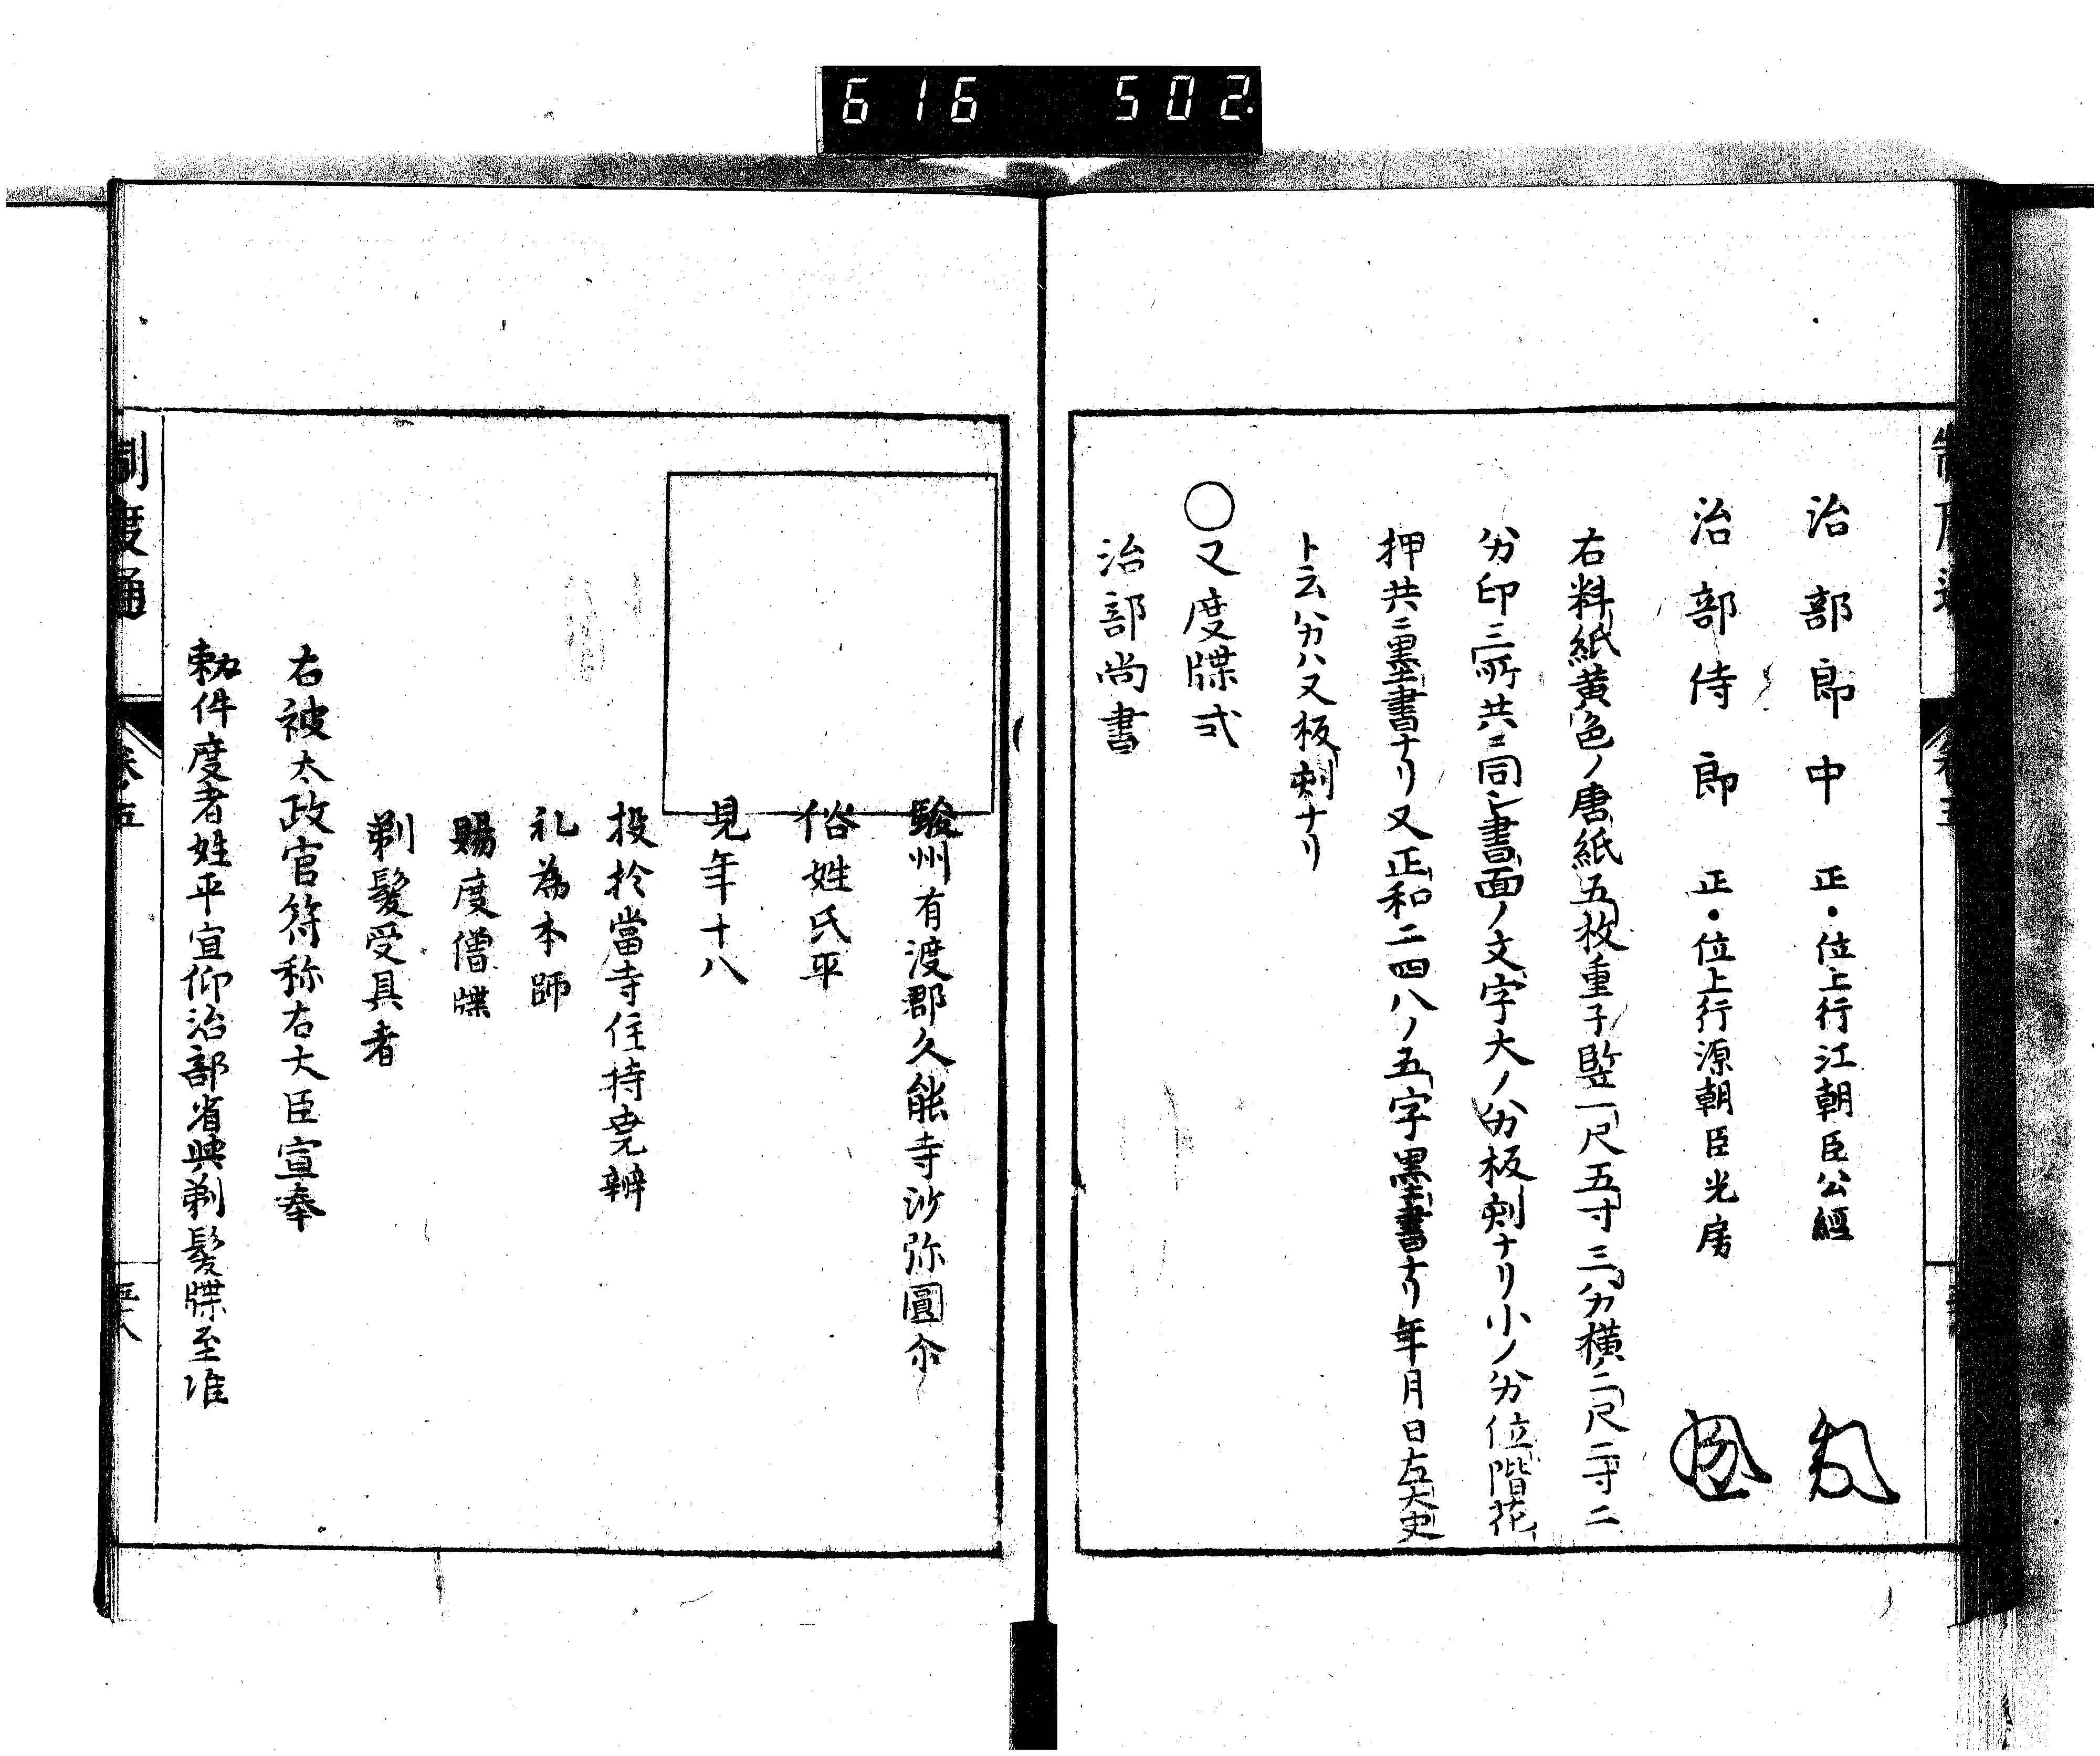 616 502.
治部郎中 正・位上行江朝臣公經
治部侍郎 正・位上行源朝臣光房
右料紙黄色ノ唐紙五枚重子竪一尺五寸三分横二尺二寸二
分印三所共ニ同シ書面ノ文字大ノ分板刻ナリ小ノ分位階花
押共ニ墨書ナリ又正和二四八ノ五字墨書ナリ年月日左大史
ト云分ハ又板刻ナリ
〇又度牒式
治部尚書
駿州有渡郡久能寺沙弥圓尓
俗姓氏平
見年十八
投於當寺住持尭辨
礼為本師
賜度僧牒
剃髪受具者
右被太政官符称右大臣宣奉
勅件度者姓平宣仰治部省与剃髪牒至准
制度通
巻五
五十八